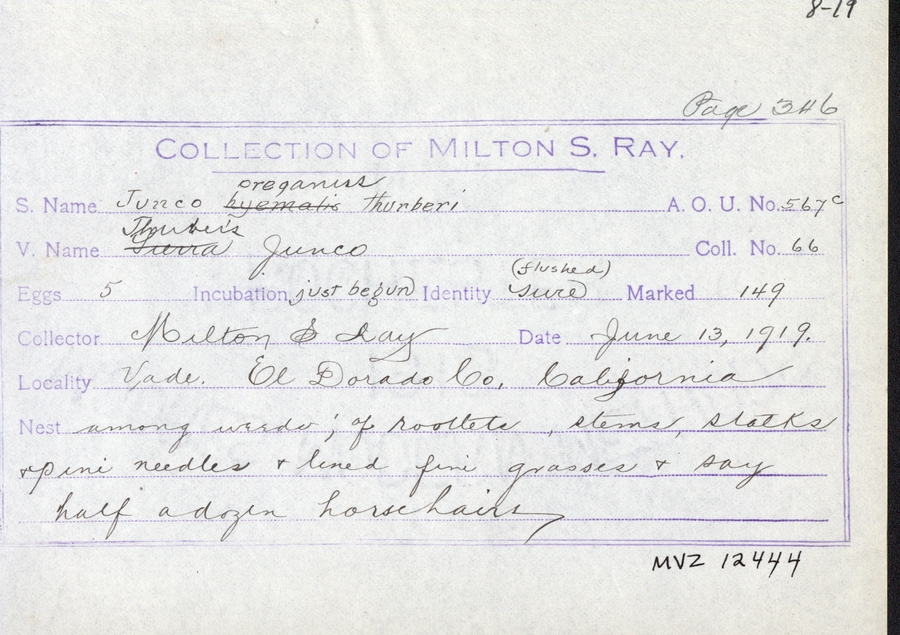 8-19
Page 346
COLLECTION OF MILTON S. RAY.
oreganus
S. Name Junco hyemalis thurberi A. O. U. No. 567c
Thurber's
V. Name Sierra Junco Coll. No. 66
(flushed)
Eggs 5 Incubation just begun Identity sure Marked 149
Collector Milton S Ray Date June 13, 1919.
Locality Vade. El Dorado Co, California
Nest among weeds; of rootlets, stems, stalks
& pine needles & lined fine grasses & say
half a dozen horsehairs
MVZ 12444